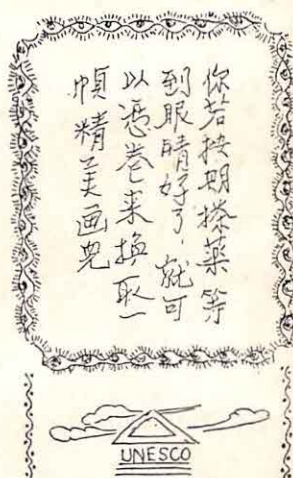 你若按期搽藥等
到眼睛好了,就可
以憑卷来換取一
幀精美画兒
UNESCO